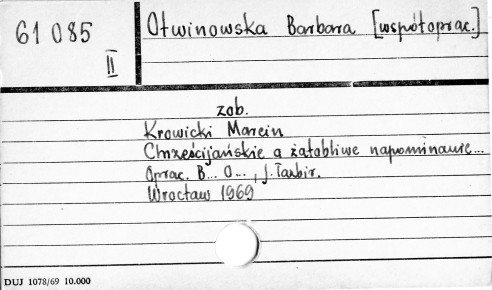 61085
II
Otwinowska Barbara [współoprac.]
zob.
Krowicki Marcin
Chrześcijańskie a żałobliwe napominanie...
Oprac. B... O..., J. Tazbir.
Wrocław 1969
DUJ 1078/69 10.000